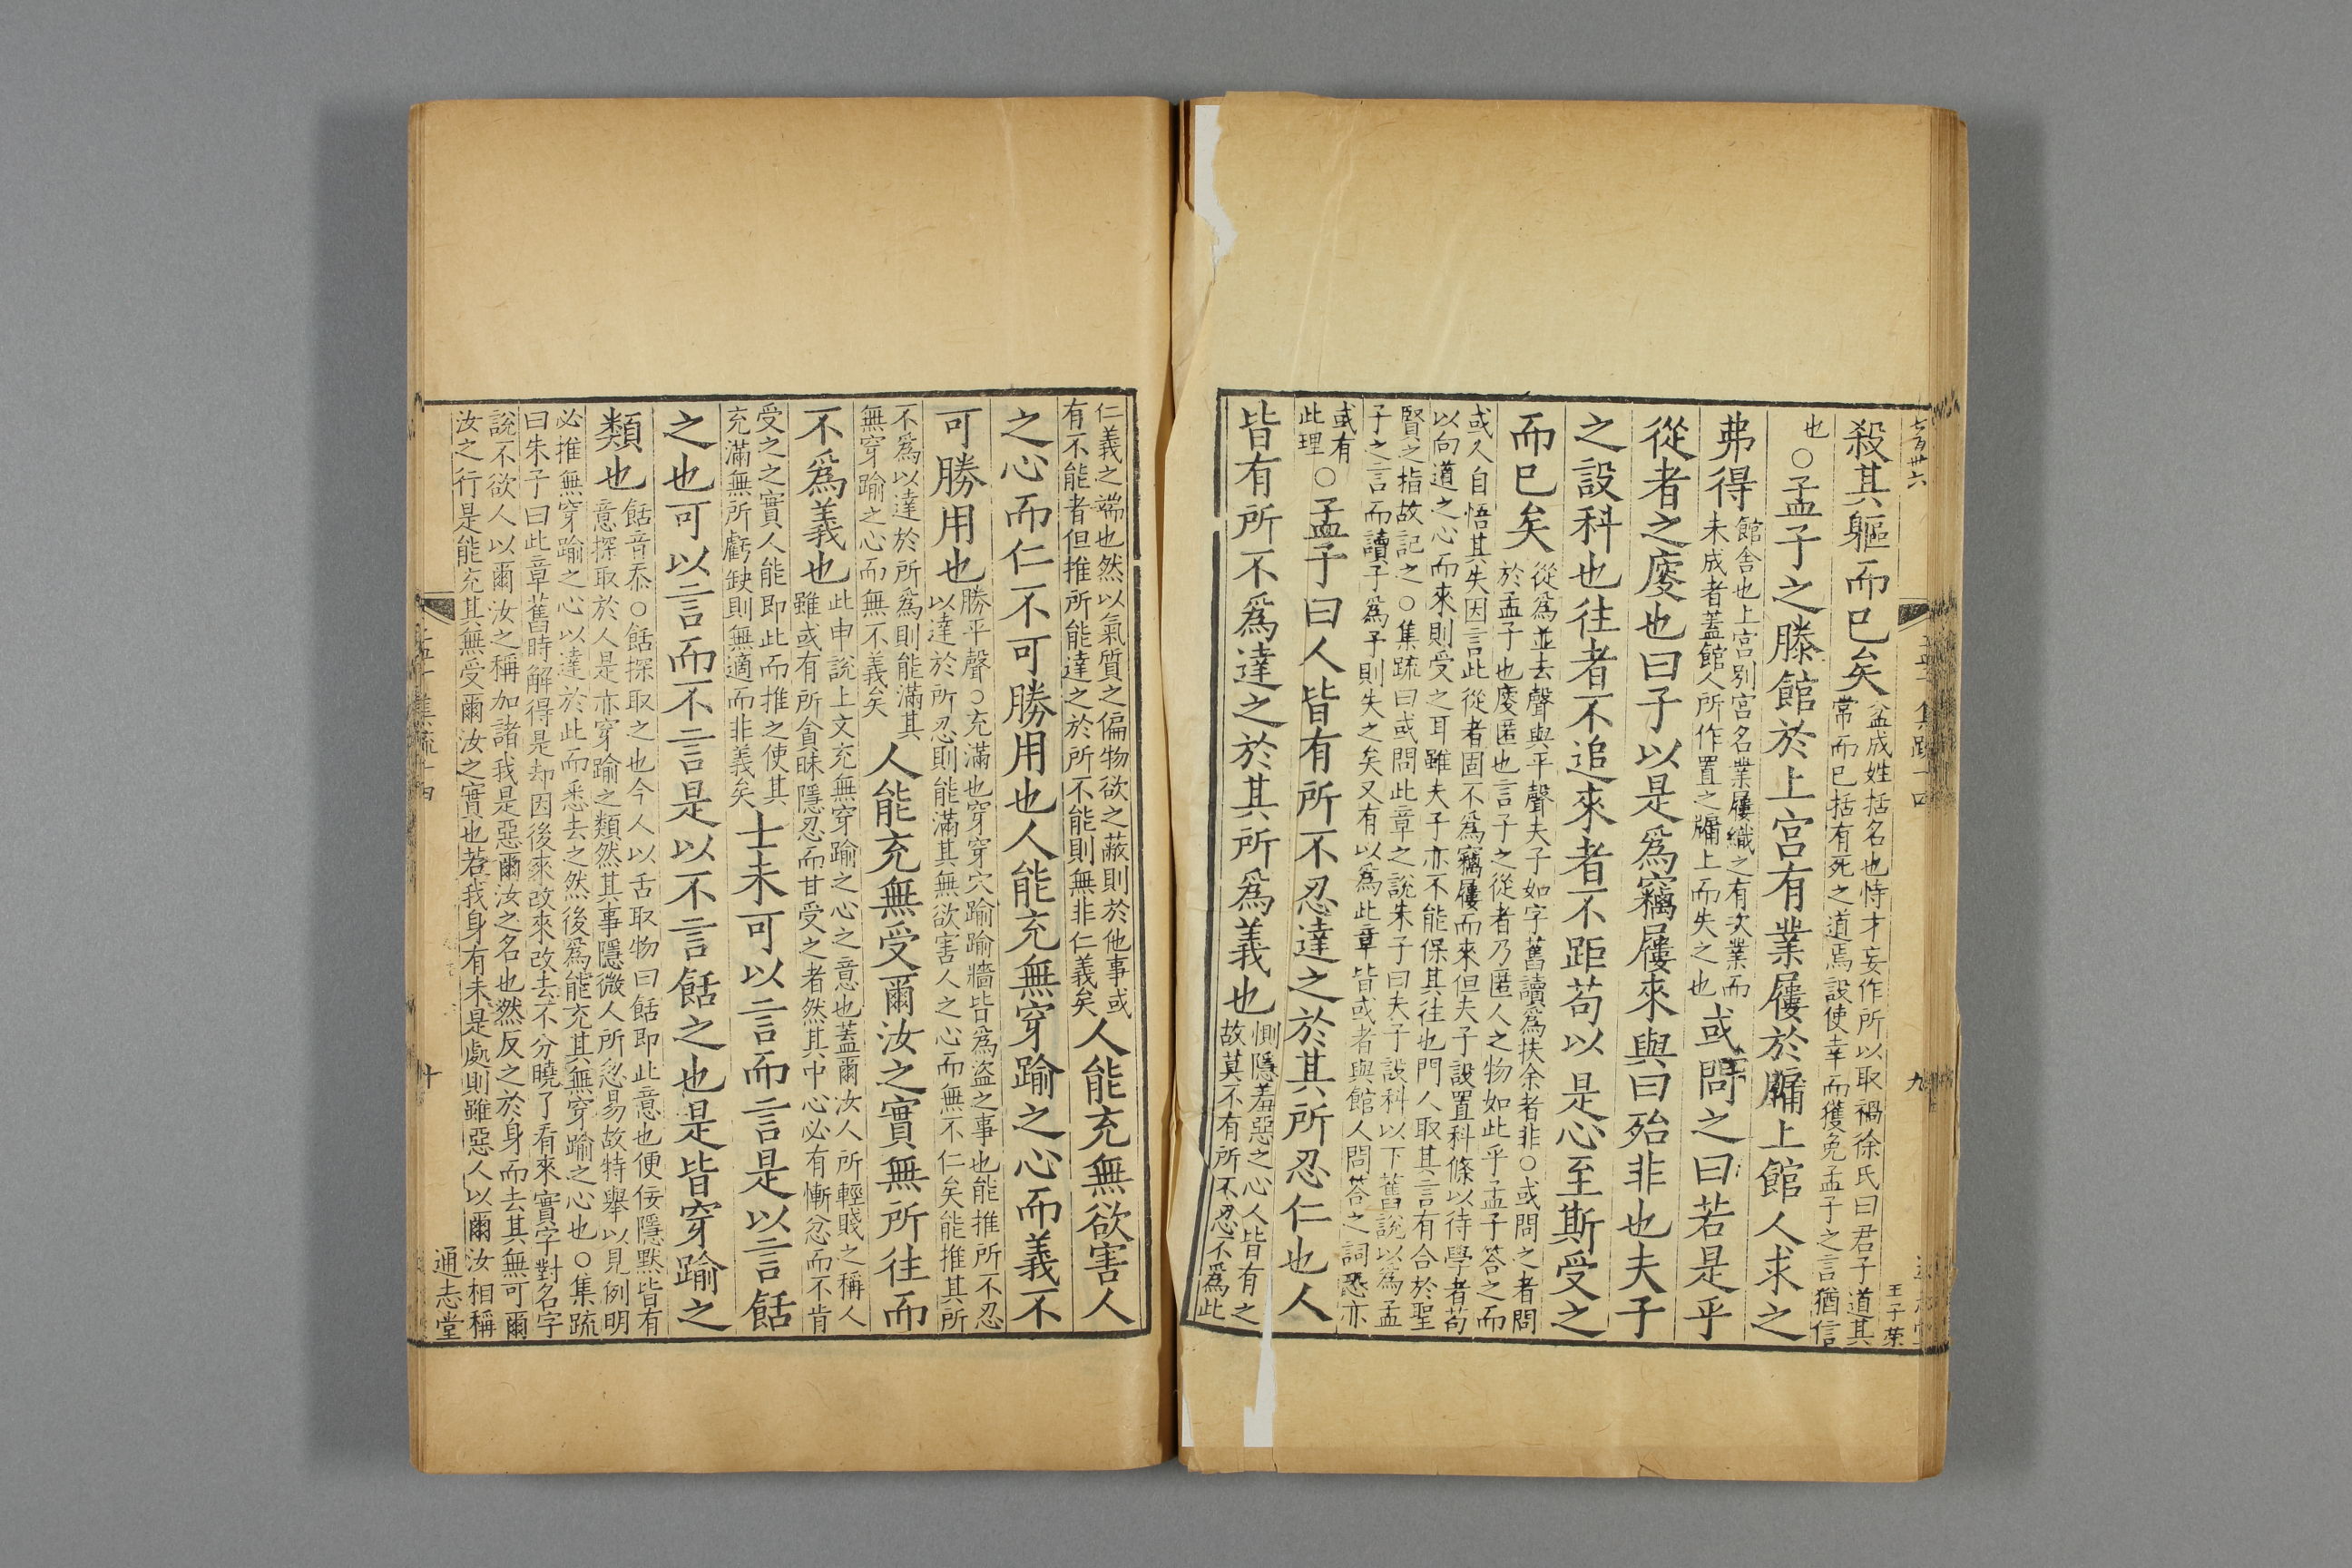 殺其軀而已矣盆成姓括名也恃才妄作所以取禍徐氏曰君子道其
常而已括有死之道焉設使幸而獲免孟子之言猶信
也○孟子之滕館於上宮有業屨於牖上館人求之
弗得館舍也上宮別宮名業屨織之有次業而
未成者蓋館人所作置之牖上而失之也或問之曰若是乎
從者之廋也曰子以是爲竊屨來與曰殆非也夫子
之設科也往者不追來者不距苟以是心至斯受之
而已矣從爲並去聲與平聲夫子如字舊讀爲扶余者非○或問之者問
於孟子也廋匿也言子之從者乃匿人之物如此乎孟子答之而
或人自悟其失因言此從者固不爲竊屨而來但夫子設置科條以待學者苟
以向道之心而來則受之耳雖夫子亦不能保其往也門人取其言有合於聖
賢之指故記之○集疏曰或問此章之說朱子曰夫子設科以下舊說以爲孟
子之言而讀子爲予則失之矣又有以爲此章皆或者與館人問答之詞恐亦
或有
此理○孟子曰人皆有所不忍達之於其所忍仁也人
皆有所不爲達之於其所爲義也惻隱羞惡之心人皆有之
故莫不有所不忍不爲此
王子榮
九
仁義之端也然以氣質之偏物欲之蔽則於他事或
有不能者但推所能達之於所不能則無非仁義矣人能充無欲害人
之心而仁不可勝用也人能充無穿踰之心而義不
可勝用也勝平聲○充滿也穿穿穴踰踰牆皆爲盜之事也能推所不忍
以達於所忍則能滿其無欲害人之心而無不仁矣能推其所
不爲以達於所爲則能滿其
無穿踰之心而無不義矣人能充無受爾汝之實無所往而
不爲義也此申說上文充無穿踰之心之意也蓋爾汝人所輕賤之稱人
雖或有所貪昧隱忍而甘受之者然其中心必有慚忿而不肯
受之之實人能即此而推之使其
充滿無所虧缺則無適而非義矣士未可以言而言是以言餂
之也可以言而不言是以不言餂之也是皆穿踰之
類也餂音忝○餂探取之也今人以舌取物曰餂即此意也便佞隱默皆有
意探取於人是亦穿踰之類然其事隱微人所忽易故特舉以見例明
必推無穿踰之心以達於此而悉去之然後爲能充其無穿踰之心也○集疏
曰朱子曰此章舊時解得是却因後來改來改去不分曉了看來實字對名字
說不欲人以爾汝之稱加諸我是惡爾汝之名也然反之於身而去其無可爾
汝之行是能充其無受爾汝之實也若我身有未是處則雖惡人以爾汝相稱
十
通志堂